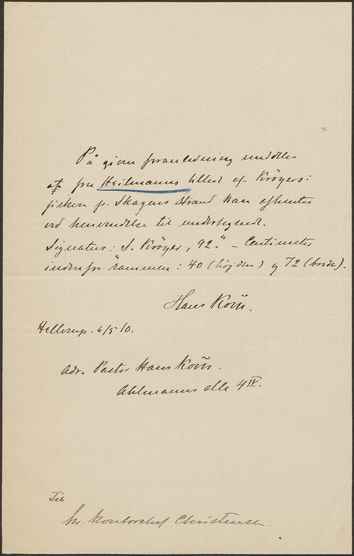 På given foranledning meddeles
at fru Heilmanns billed af Krøyer:
piken på Skagens Strand kan afhentes
ved henvendelse til undertegnede.
Signatur: S. Krøyer, 92." – Centimeter
indenfor rammen: 40 (højden) og 72 (bredde).
Hans Koch.
Hellerup. 6/5 10.
Adr. Pastor Hans Koch.
Ahlmanns alle 4 IV.
Til
hr. Kontorchef Christensen